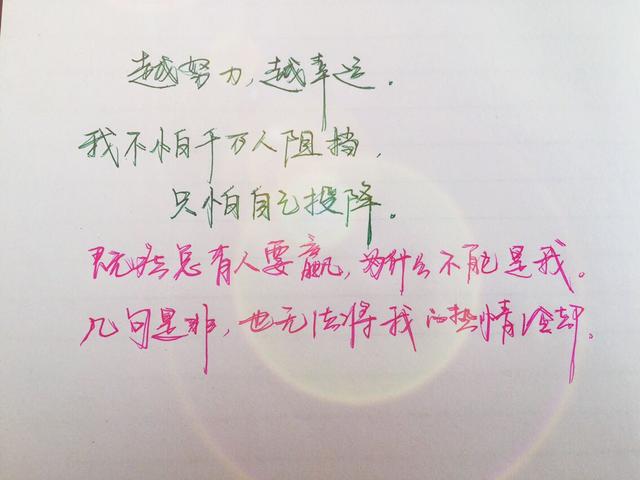 越努力,越幸运.
我不怕千万人阻挡,
只怕自己投降。
既然总有人要赢,为什么不能是我。
几句是非,也无法将我的热情冷却.